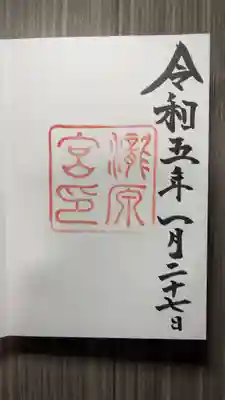 令和五年一月二十七日
瀧原
宮印